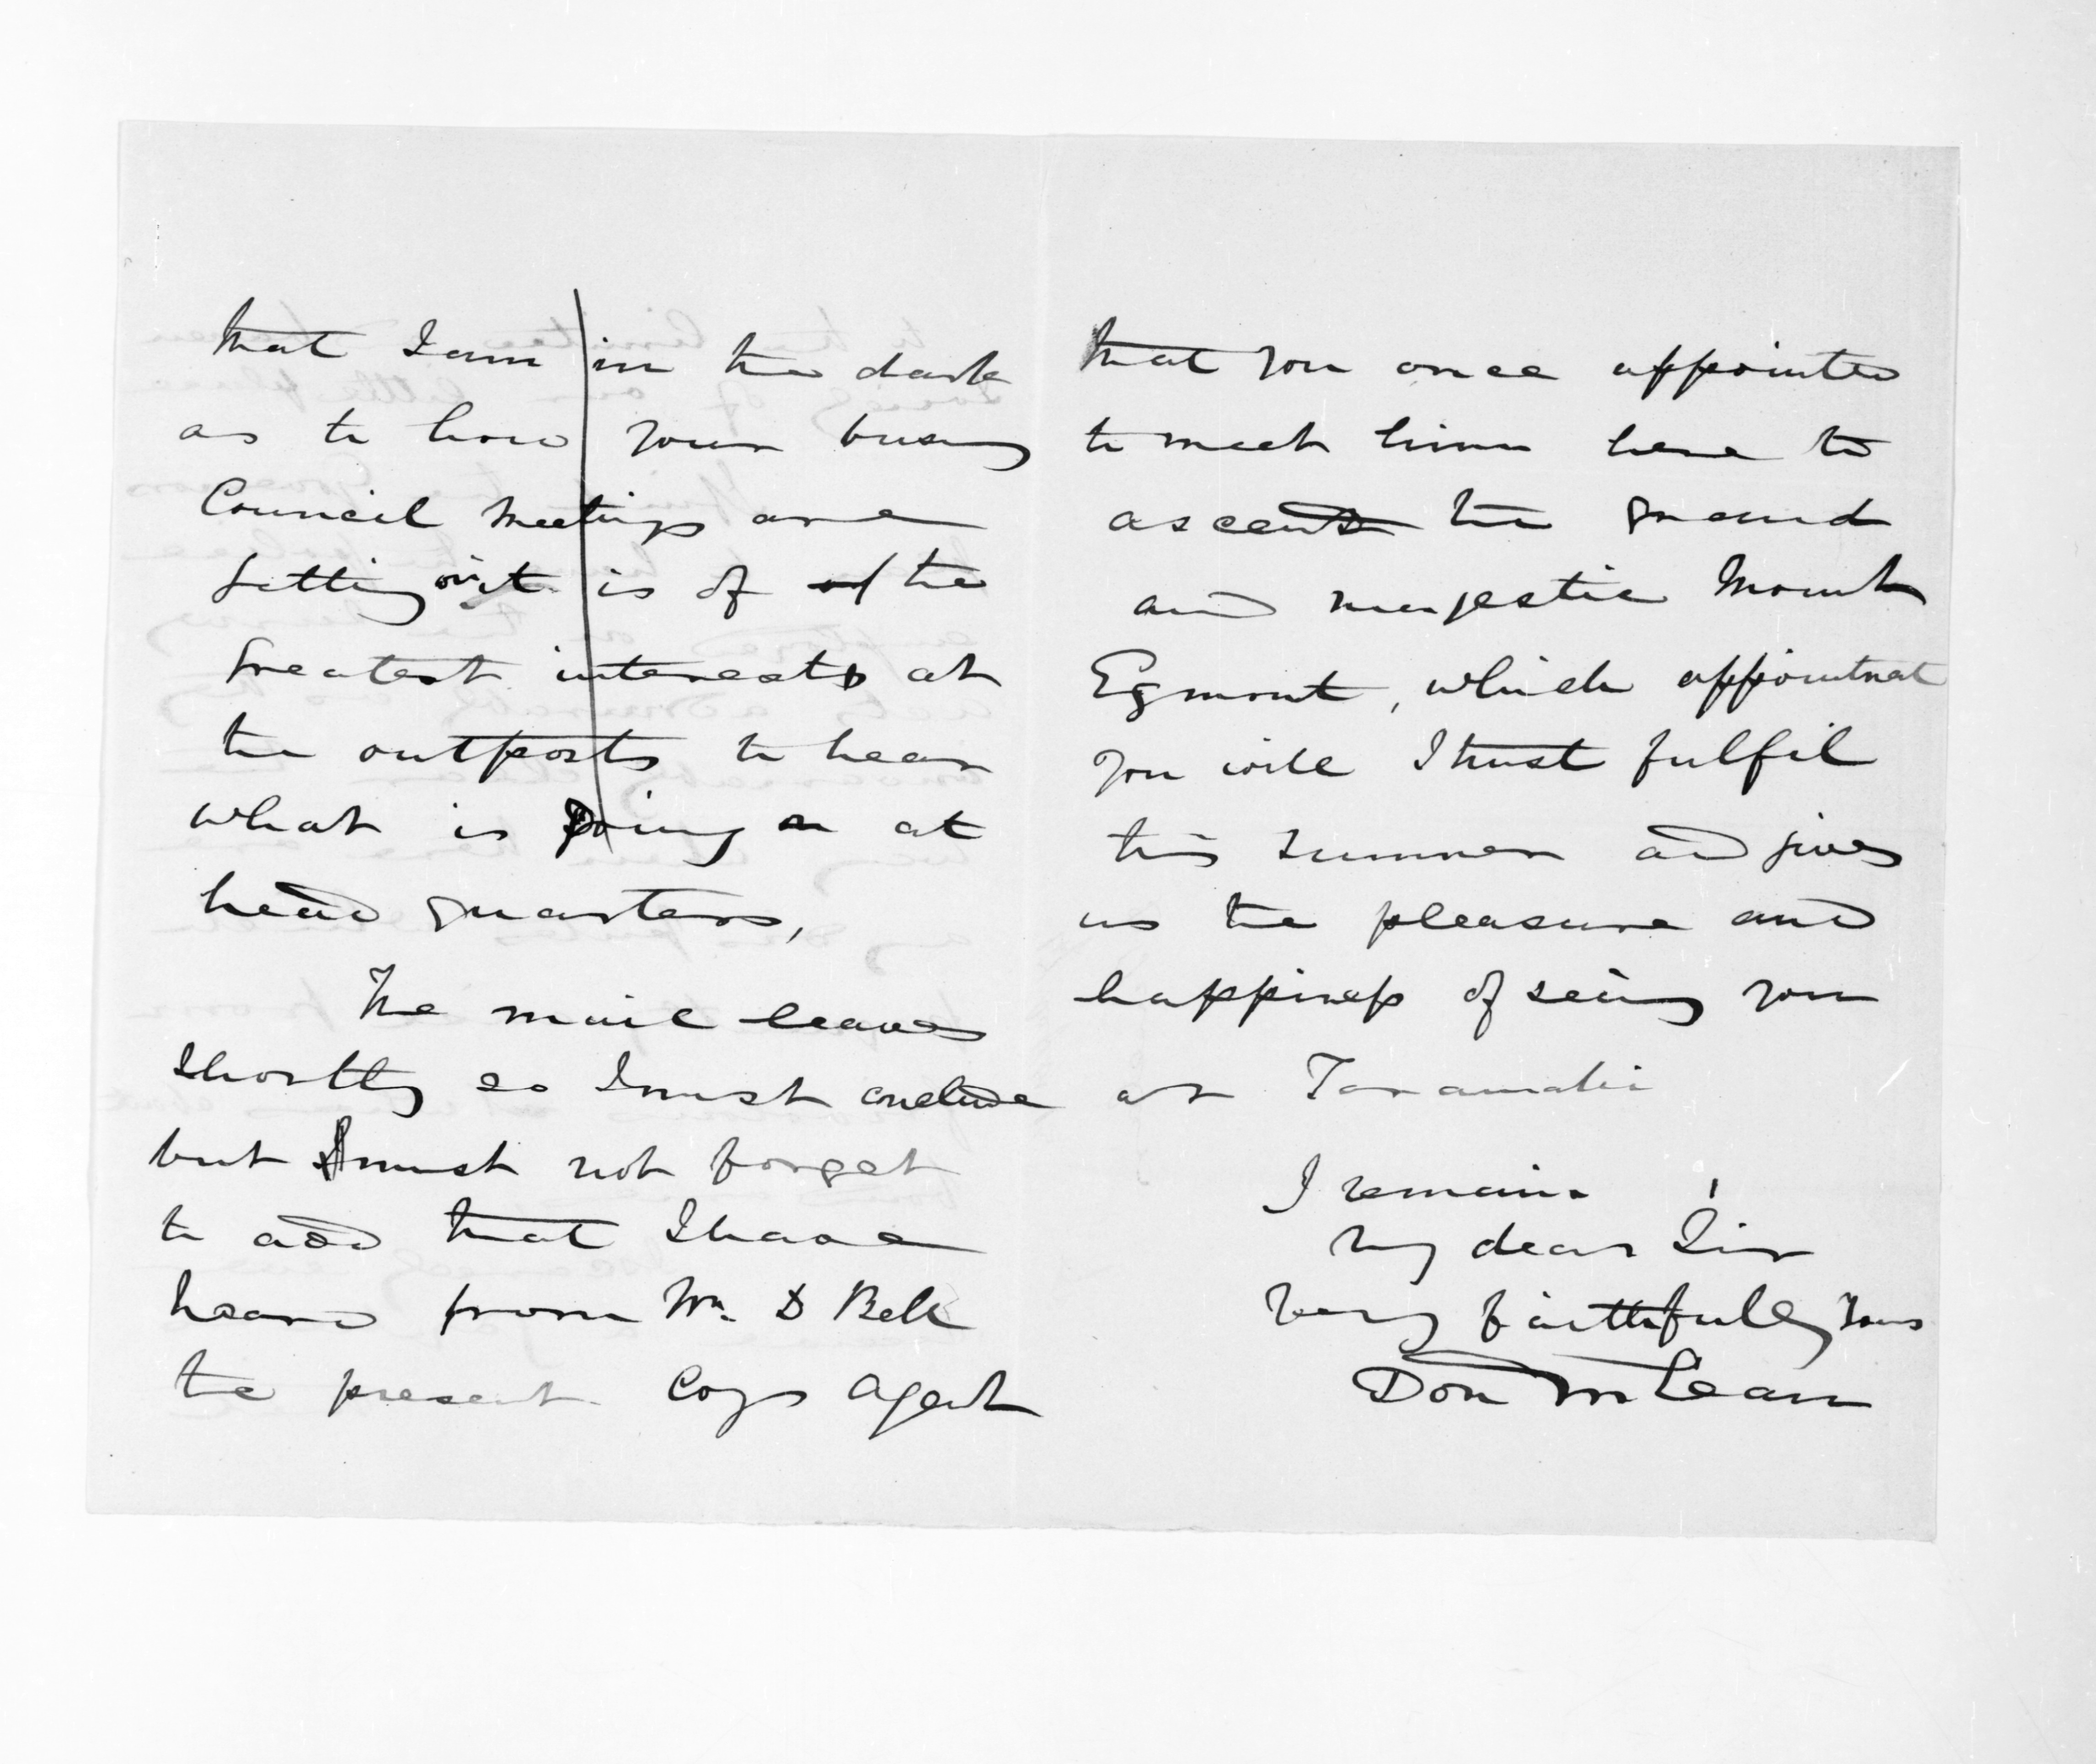 that I am in the dark
as to how your busy
Council meetings are
getting on it is of of the
greatest interests at
the outposts to hear
what is going on at
head quarters,
The mail leaves
shortly so I must conclude
but I must not forget
to add that I have
heard from Wm. D Bell
the present Coys Agent
that you once appointed
to meet him here to
ascend the grand
and majestic Mount
Egmont, which appointmet
you will I trust fulfil
this summer and give
us the pleasure and
happiness of seeing you
at Taranaki
I remain
My dear Sir
Very faithfully Yours
Don McLean